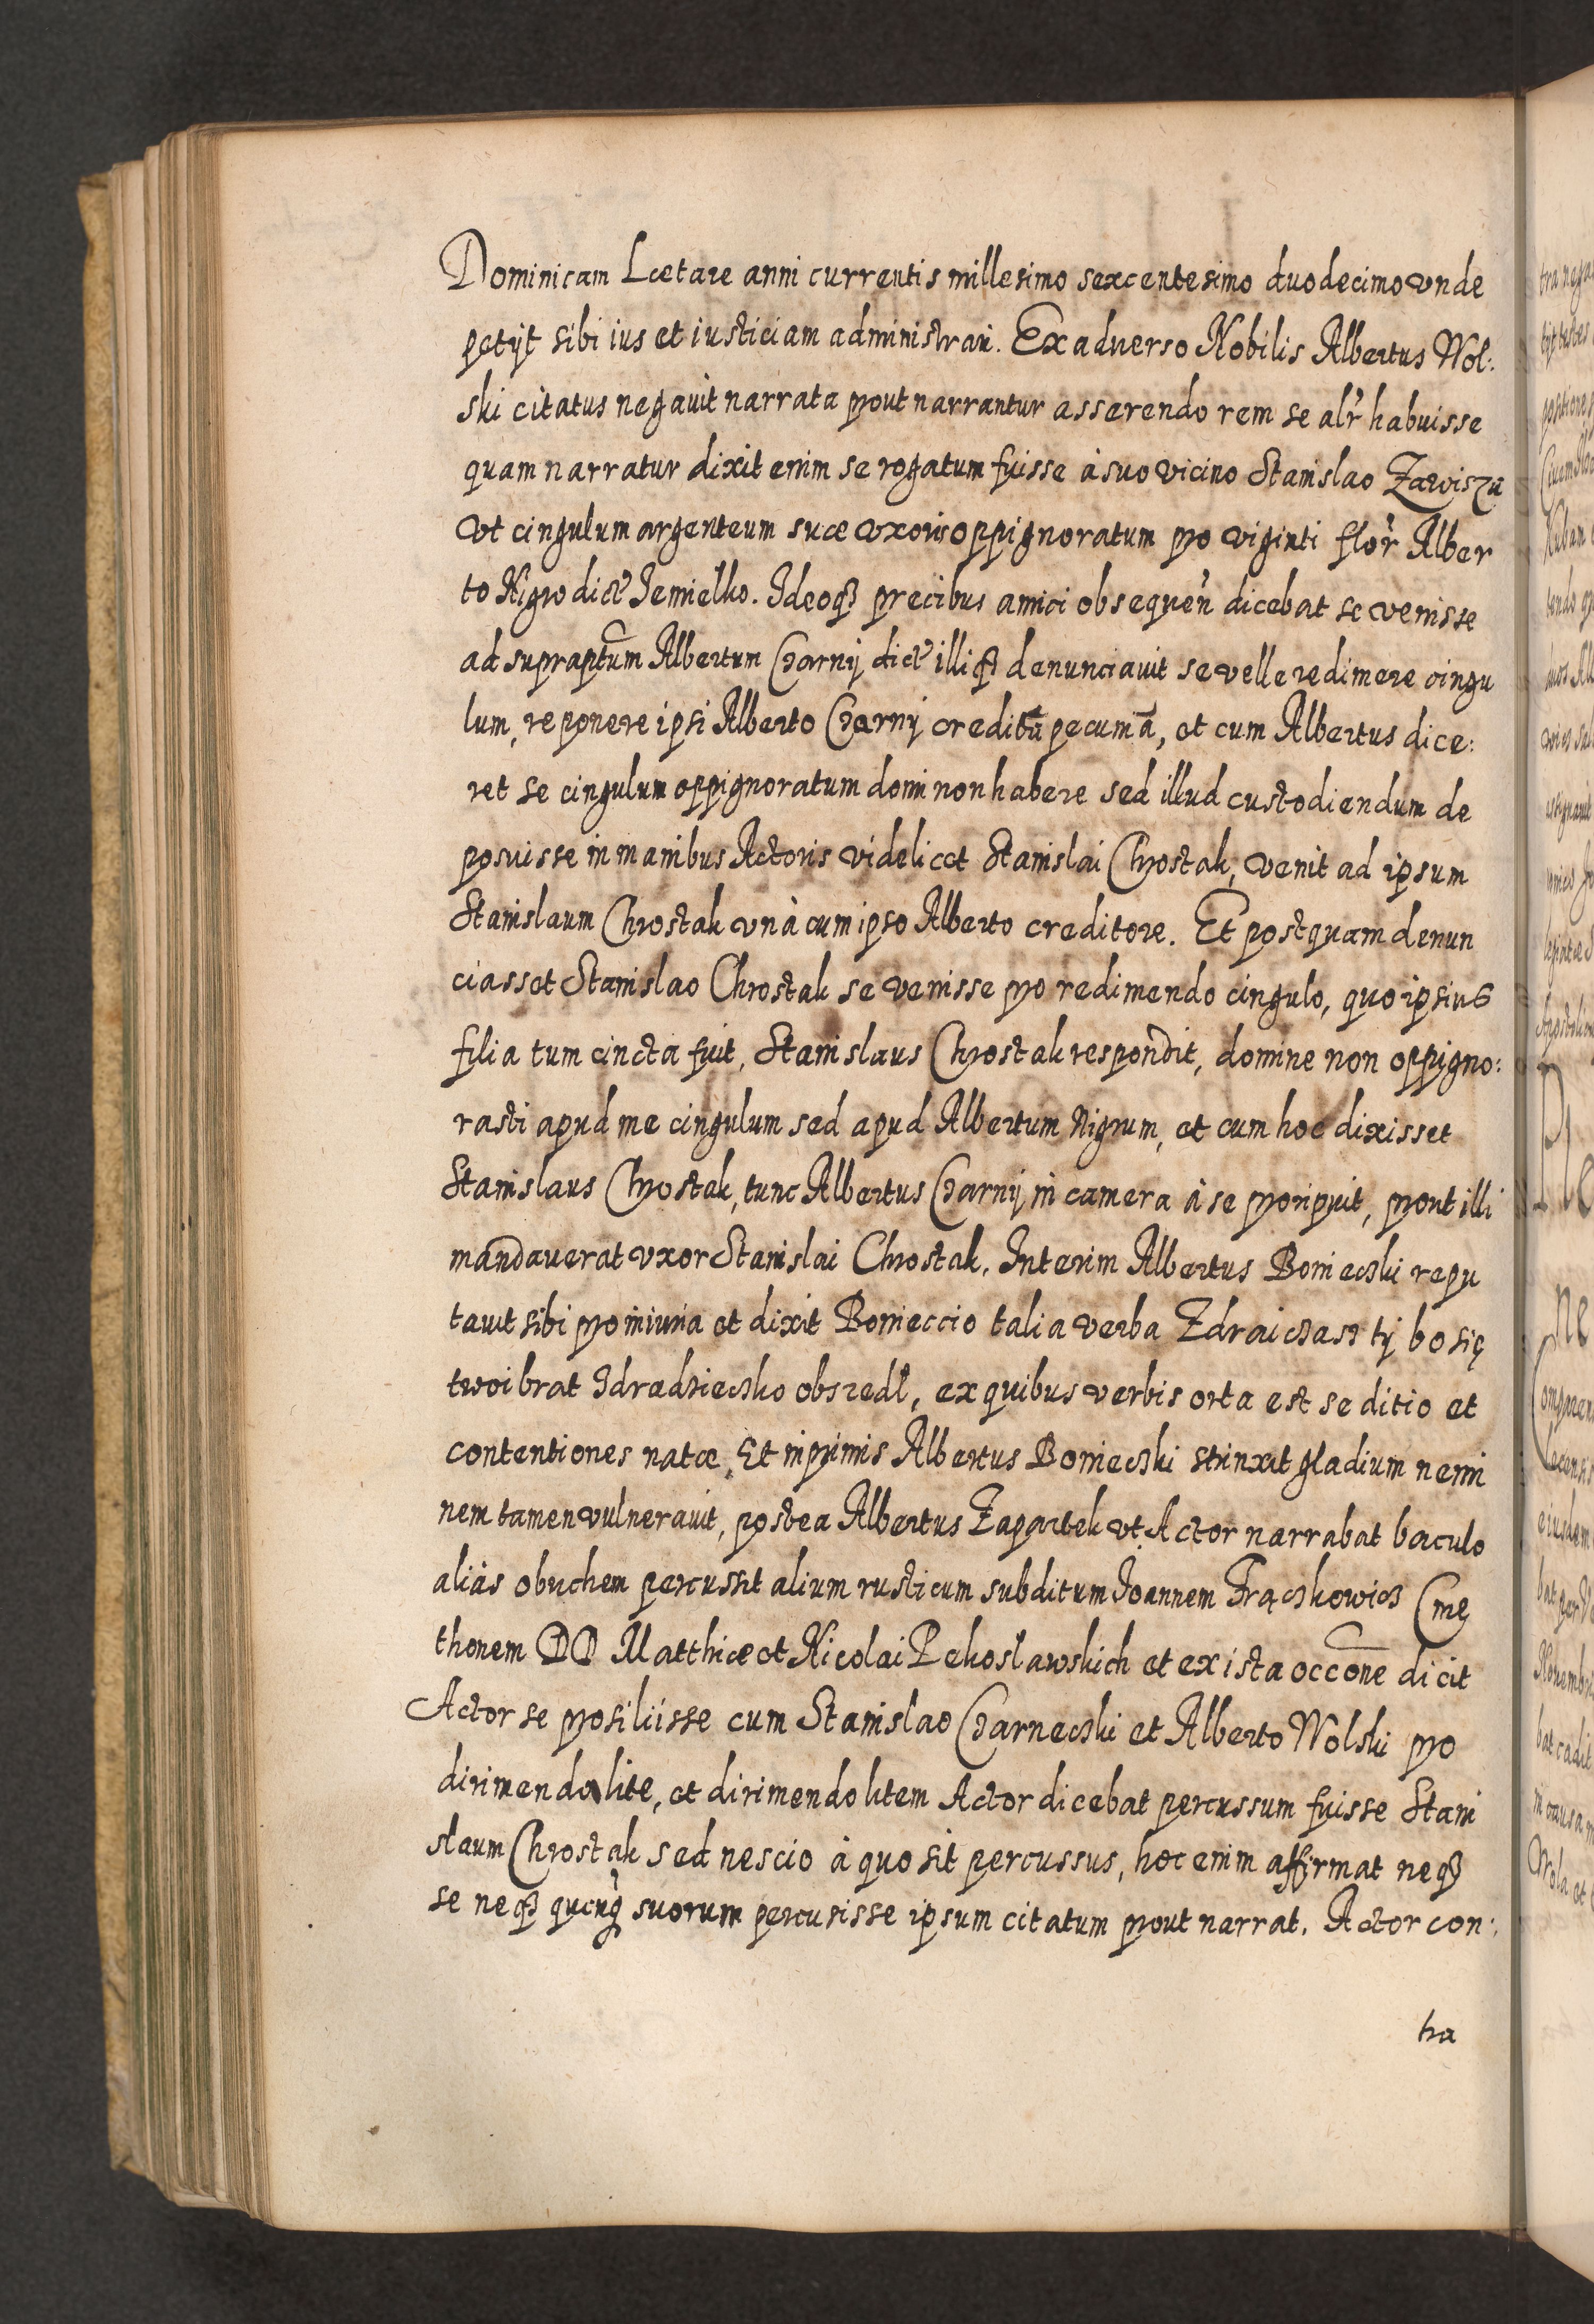 Dominicam Lætare anni currentis millesimo sexcentesimo duodecimo vnde
petijt sibi ius et iusticiam administrari. Ex aduerso Nobilis Albertus Wol:
ski citatus negauit narrata prout narrantur asserendo rem se alr̃ habuisse
quam narratur dixit enim se rogatum fuisse à suo vicino Stanislao Zawiszą
vt cingulum argenteum suæ vxoris oppignoratum pro viginti flor̃ Alber
to Nigro dict Jemielko. Ideoqȝ precibus amici obsequeñ dicebat se venisse
ad supraptum Albertum Czarnÿ dict illiqȝ denunciauit se velle redimere cingu
lum, reponere ipsi Alberto Czarnÿ creditã pecuniã, et cum Albertus dice:
ret se cingulum oppignoratum domi non habere sed illud custodiendum de
posuisse in manibus Actoris videlicet Stanislai Chrostak, venit ad ipsum
Stanislaum Chrostak vnà cum ipso Alberto creditore. Et postquam denun
ciasset Stanislao Chrostak se venisse pro redimendo cingulo, quo ipsius
filia tum cincta fuit, Stanislaus Chrostak respondit, domine non oppigno:
rasti apud me cingulum sed apud Albertum Nigrum, et cum hoc dixisset
Stanislaus Chrostak, tunc Albertus Czarnÿ in camera à se proripuit, prout illi
mandauerat vxor Stanislai Chrostak. Interim Albertus Boniecżki repu
tauit sibi pro iniuria et dixit Bonieccio talia verba Zdraicżasż tÿ bo się
twoi brat zdradżiecżko obszedł, ex quibus verbis orta est seditio et
contentiones natæ, Et inprimis Albertus Boniecżki strinxit gladium nemi
nem tamen vulnerauit, postea Albertus Zapartek vt Actor narrabat baculo
aliàs obuchem percussit alium rusticum subditum Joannem Frącżkowicż Cme
thonem DD Matthiæ et Nicolai Rekosławskich et ex ista occone dicit
Actor se prosiliisse cum Stanislao Czarnecżki et Alberto Wolski pro
dirimenda lite, et dirimendo litem Actor dicebat percussum fuisse Stani
slaum Chrostak sed nescio à quo sit percussus, hoc enim affirmat neqȝ
se neqȝ suorum percusisse ipsum citatum prout narrat. Actor con:
tra